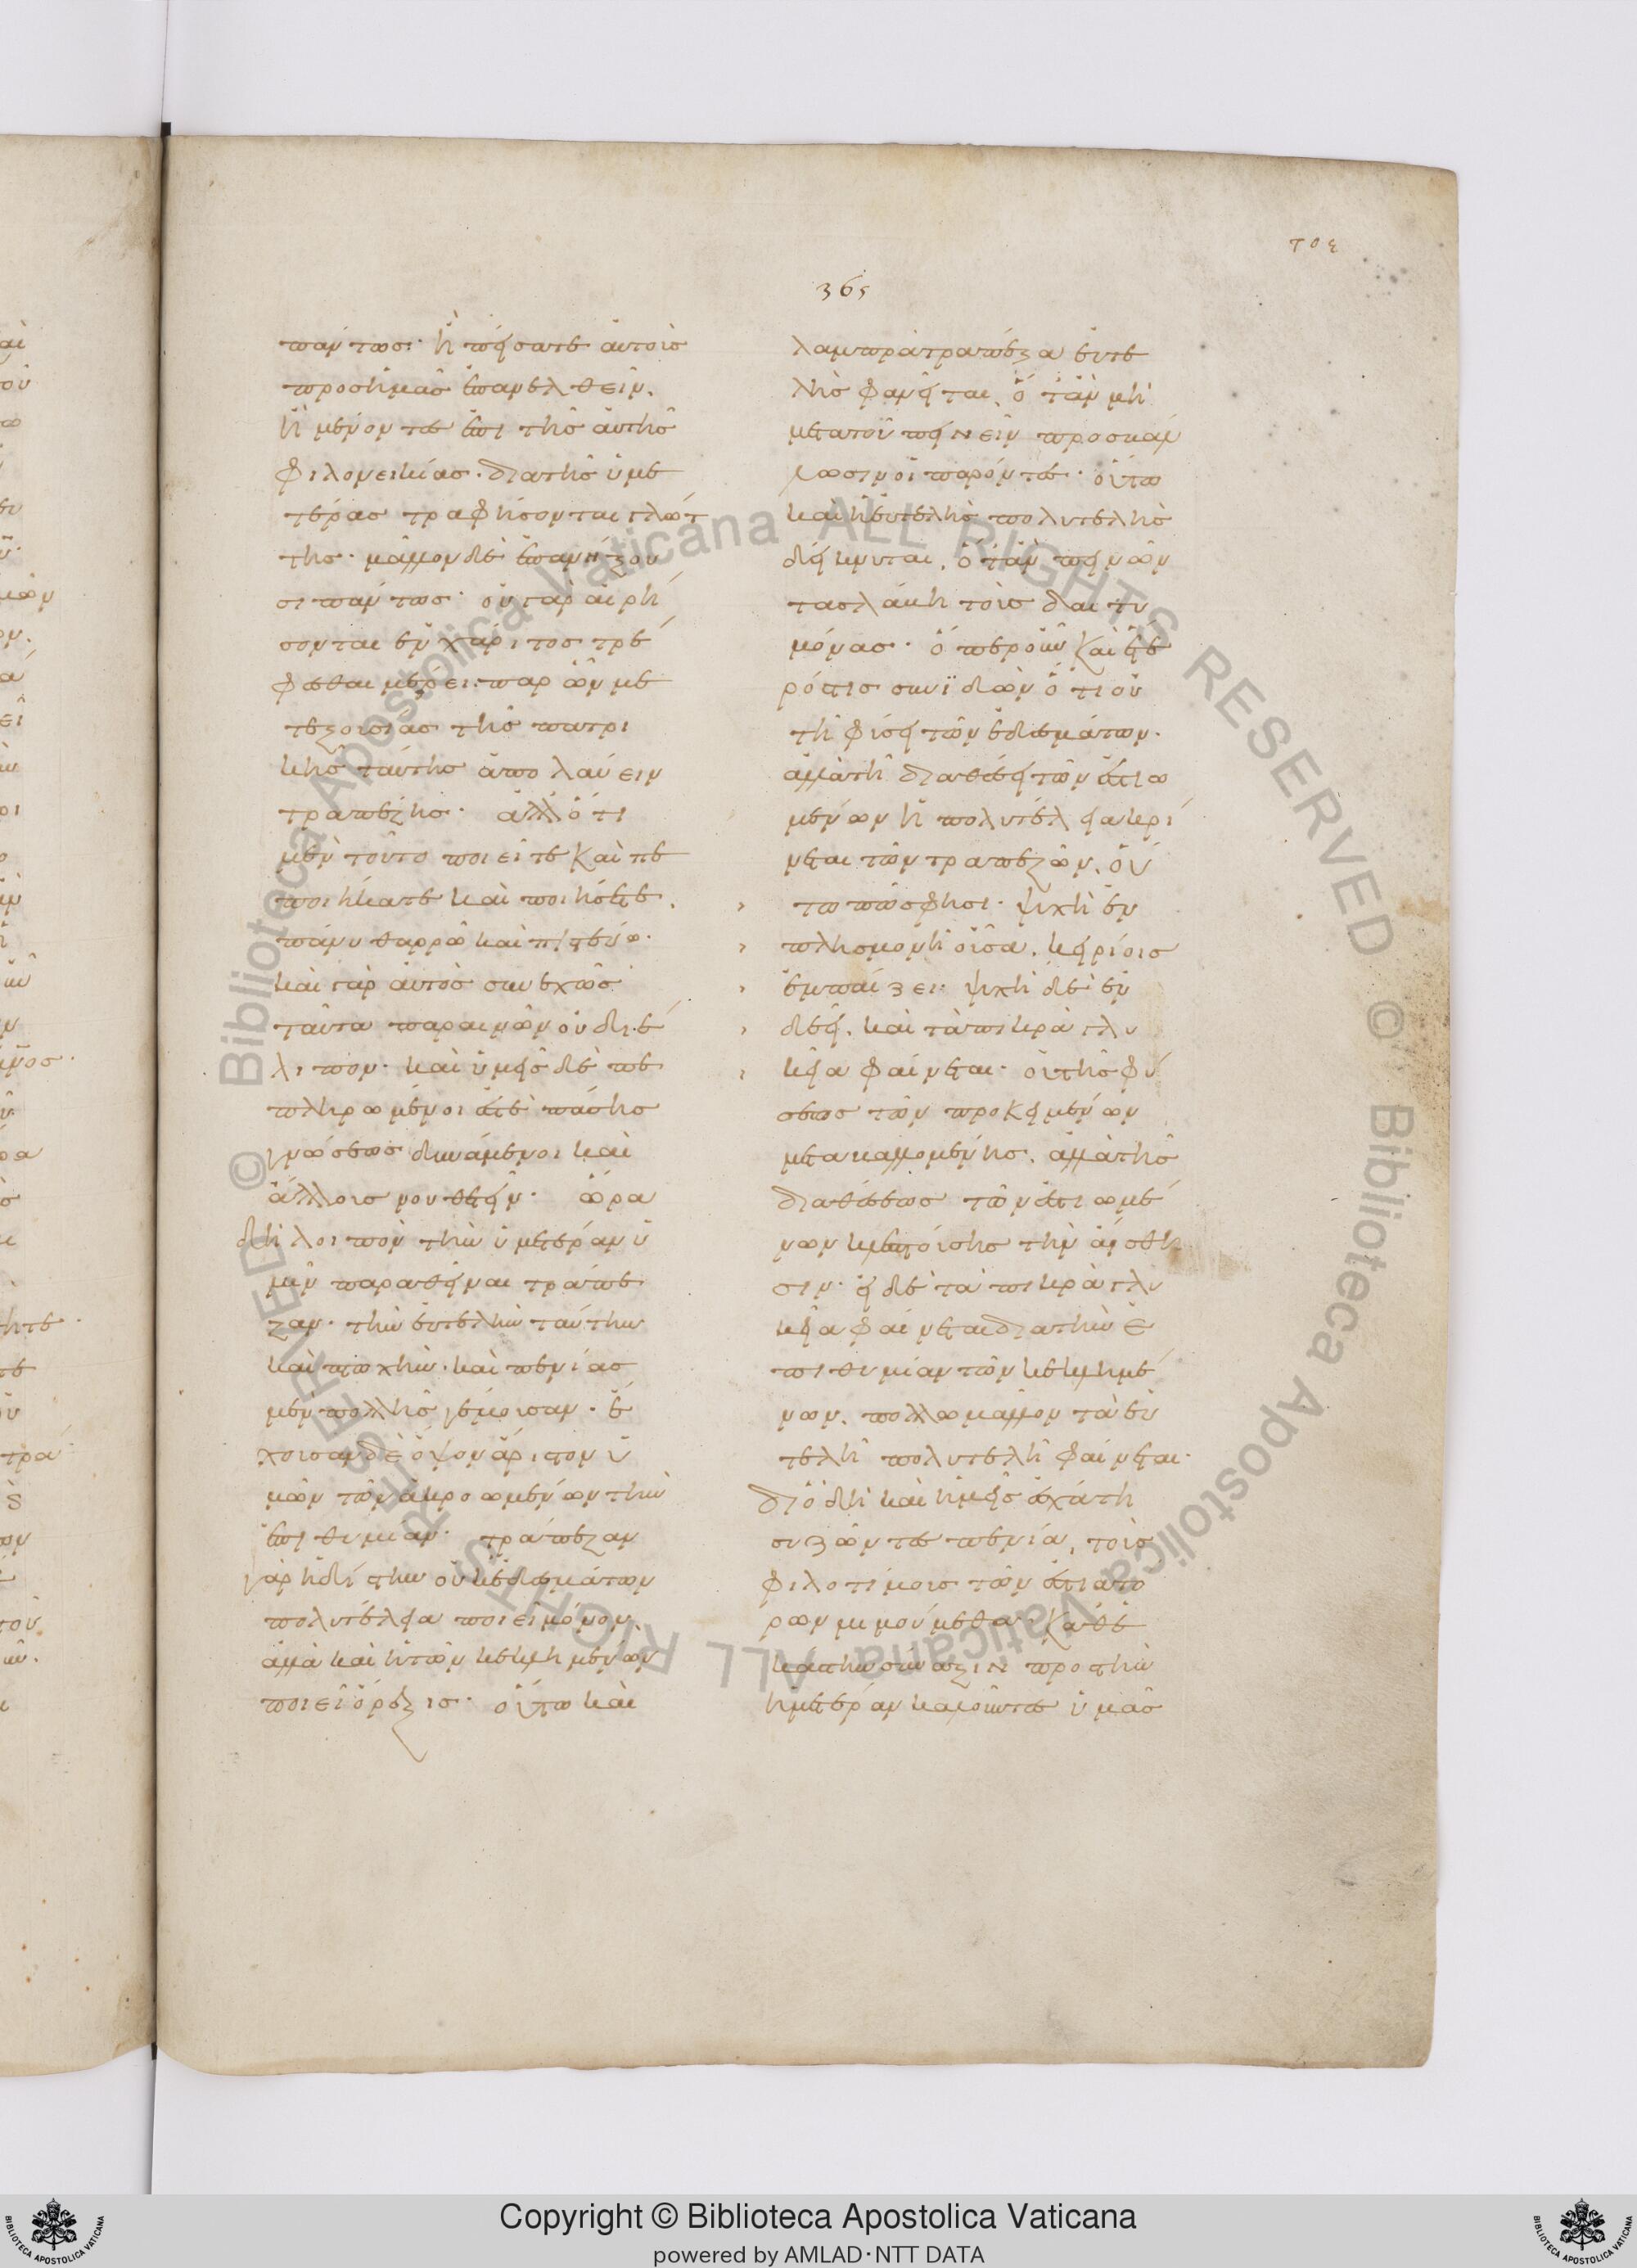 τοε
365
πάντωσ· ἢ πείσατε αὐτοὺσ
πρὸσ ἡμᾶσ ἐπανελθεῖν.
ἢ μένοντεσ ἐπὶ τῆσ αὐτῆσ
φιλονεικίασ. διὰ τῆσ ὑμε
τέρασ τραφήσονται γλώτ
τησ. μᾶλλον δὲ ἐπανήξου
σι πάντωσ· οὐ γὰρ αἱρή
σονται ἐν χάριτοσ τρέ
φεσθαι μέρει παρ ὧν με
τεξουσίασ τῆσ πατρι
κῆσ ταύτησ ἀπολαύειν
τραπέζησ· ἀλλ ὅτι
μὲν τοῦτο ποιεῖτε καὶ πε
ποιήκατε καὶ ποιήσετε.
πάνυ θαρρῶ καὶ πιστεύω.
καὶ γὰρ αὐτὸσ συνεχῶσ
ταῦτα παραινῶν οὐ διέ
λιπον. καὶ ὑμεῖσ δὲ πε
πληρωμένοι ἐστὲ πάσησ
γνώσεωσ δυνάμενοι καὶ
ἄλλουσ νουθετεῖν. ὥρα
δὴ λοιπὸν τὴν ὑμετέραν ὑ
μῖν παραθεῖναι τράπε
ζαν. τὴν εὐτελῆ ταύτην
καὶ πτωχὴν. καὶ πενίασ
μὲν πολλῆσ γέμουσαν. ἔ
χουσαν δὲ ὄψον ἄριστον ὑ
μῶν τῶν ἀκροωμένων τὴν
ἐπιθυμίαν. τράπεζαν
γὰρ ἡδίστην οὐκ ἐδεσμάτων
πολυτέλεια ποιεῖ μόνον
ἀλλὰ καὶ ἡ τῶν κεκλημένων
ποιεῖ ὄρεξισ. οὕτω καὶ
λαμπρὰ τράπεζα εὐτε
λὴσ φανεῖται. ὅταν μὴ
μετὰ τοῦ πεινεῖν προσκάμ
νωσιν οἱ παρόντεσ. οὕτω
καὶ ἡ εὐτελὴσ πολυτελὴσ
δείκνυται. ὅταν πεινῶν
τασ λάχῃ τοὺσ δαιτυ
μόνασ. ὅπερ οὖν καὶ ἕτε
ρόσ τισ συνϊδὼν ὅτι οὐ
τῇ φύσει τῶν ἐδεσμάτων.
ἀλλὰ τῇ διαθέσει τῶν ἑστιω
μένων ἡ πολυτέλεια κρί
νεται τῶν τραπεζῶν. οὕ
τω πώσ φησι. ψυχὴ ἐν
πλησμονῇ οὖσα. κηρίοισ
ἐμπαίζει. ψυχῇ δὲ ἐν
δεεῖ. καὶ τὰ πικρὰ γλυ
κεῖα φαίνεται. οὐ τῆσ φύ
σεωσ τῶν προκειμένων
μεταβαλλομένησ. ἀλλὰ τῆσ
διαθέσεωσ τῶν ἑστιωμέ
νων κλεπτούσησ τὴν αἴσθη
σιν. εἰ δὲ τὰ πικρὰ γλυ
κεῖα φαίνεται διὰ τὴν ἐ
πιθυμίαν τῶν κεκλημέ
νων. πολλῷ μᾶλλον τὰ εὐ
τελῆ πολυτελῆ φαίνεται.
διὸ δὴ καὶ ἡμεῖσ ἐσχάτῃ
συζῶντεσ πενίᾳ, τοὺσ
φιλοτίμουσ τῶν ἑστιατό
ρων μιμούμεθα. καθ ἑ
κάστην σύναξιν πρὸσ τὴν
ἡμετέραν καλοῦντεσ ὑμᾶσ
© Biblioteca Apostolica Vaticana ALL RIGHTS RESERVED © Biblioteca Apostolica Vaticana ALL RIGHTS RESERVED
Copyright © Biblioteca Apostolica Vaticana
powered by AMLAD·NTT DATA
BIBLIOTECA APOSTOLICA VATICANA
BIBLIOTECA APOSTOLICA VATICANA